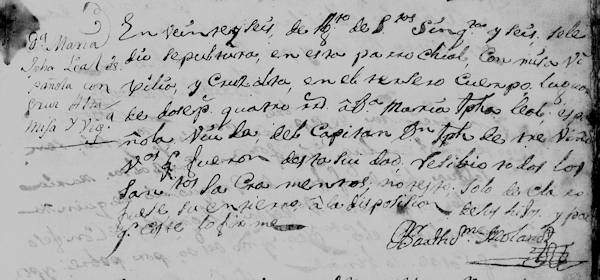 Da Maria
Jpha Leal es
pañola con
Cruz Alta
Misa Y Vigª
En veinte y seis, de de Stos Sinqta y seis, se le
dio sepultura, en esta parrochial, con misa Vi
gilia, y Cruz alta, en el tersero Cuerpo, lugar
de dose ps quatro rrs à Da Maria Jpha Leal, espa
ñola Viuda del Capitan Dn Jph de tre Viño
Vos q fueron desta Siudad, resibio todos los
Santos Sacramentos, no testo, solo declaro
fuese su entierro, à la disposision de sus hijos, y para
q conste lo firmé
Barthme Molano